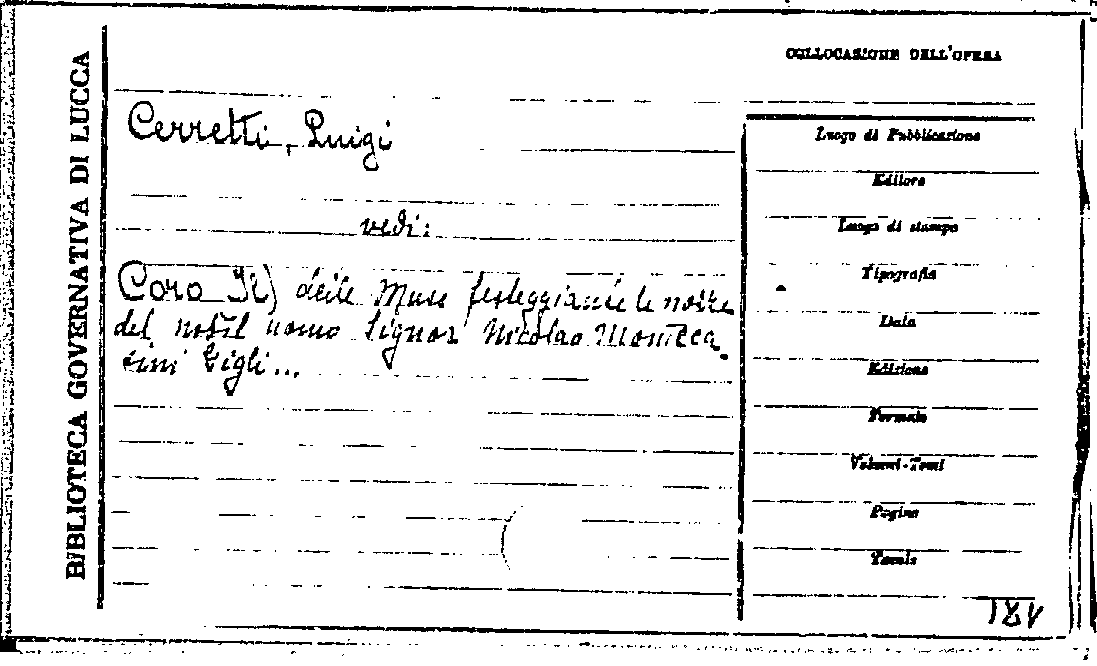 BIBLIOTECA GOVERNATIVA DI LUCCA
COLLOCAZIONE DELL'OPERA
Cerretti, Luigi
vedi:
Coro Il) delle Muse festeggiante le nozze
del nobil uomo Signor Nicolao Monteca_
tini Gigli...
Luogo di Pubblicazione
Editore
Luogo di stampa
Tipografia
Data
Edizione
Formato
Volumi-Tomi
Pagine
Tavole